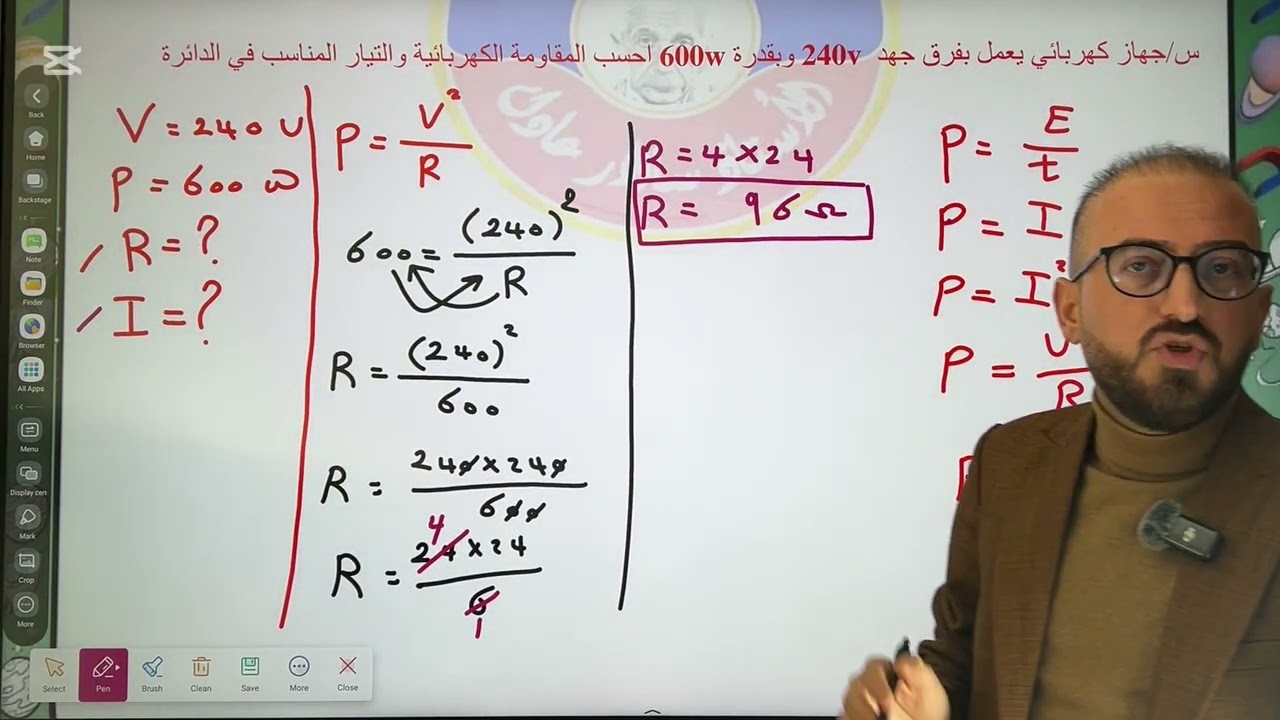 س/جهاز كهربائي يعمل بفرق جهد 240v وبقدرة 600w احسب المقاومة الكهربائية والتيار المناسب في الدائرة
V = 240 V
P = 600 W
R = ?
I = ?
P = V² / R
600 = (240)² / R
R = (240)² / 600
R = 240 × 240 / 600
R = 24 × 24 / 6
4
1
R = 4 × 24
R = 96 Ω
P = E / t
P = I
P = I²
P = V / R
Back
Home
Backstage
Note
Finder
Browser
All Apps
Menu
Display cen
Mark
Crop
More
Select
Pen
Brush
Clean
Save
More
Close